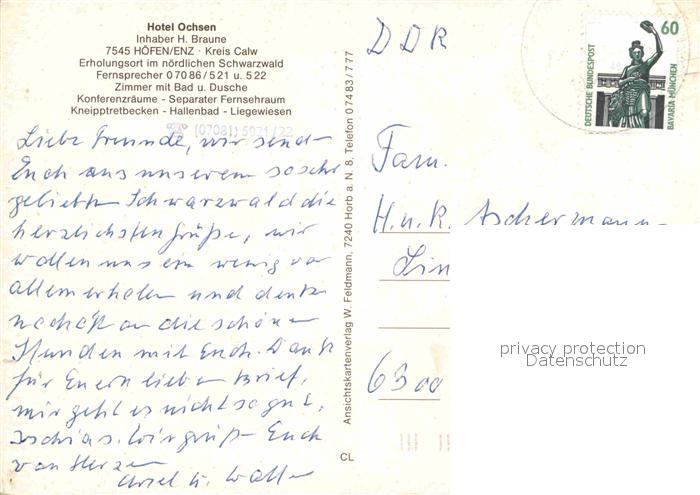 Hotel Ochsen
Inhaber H. Braune
7545 HÖFEN/ENZ · Kreis Calw
Erholungsort im nördlichen Schwarzwald
Fernsprecher 0 70 86 / 5 21 u. 5 22
Zimmer mit Bad u. Dusche
Konferenzräume - Separater Fernsehraum
Kneipptretbecken - Hallenbad - Liegewiesen
(07081) 5021/22
Liebe Freunde, wir send
Euch aus unserem so sehr
geliebten Schwarzwald die
herzlichsten Grüße, wir
wollen uns ein wenig vor
allem erholen und denken
noch oft an die schönen
Stunden mit Euch. Dank
für Euern lieben Brief,
mir geht es nicht so gut,
Ischias. Wir grüßen Euch
von Herzen
Ursel u. Walter
Ansichtskartenverlag W. Feldmann, 7240 Horb a. N. 8, Telefon 07483/777
CL
DDR
60
DEUTSCHE BUNDESPOST
BAVARIA MÜNCHEN
Fam.
H. u. R. Aschermann
Lin
6300
privacy protection
Datenschutz